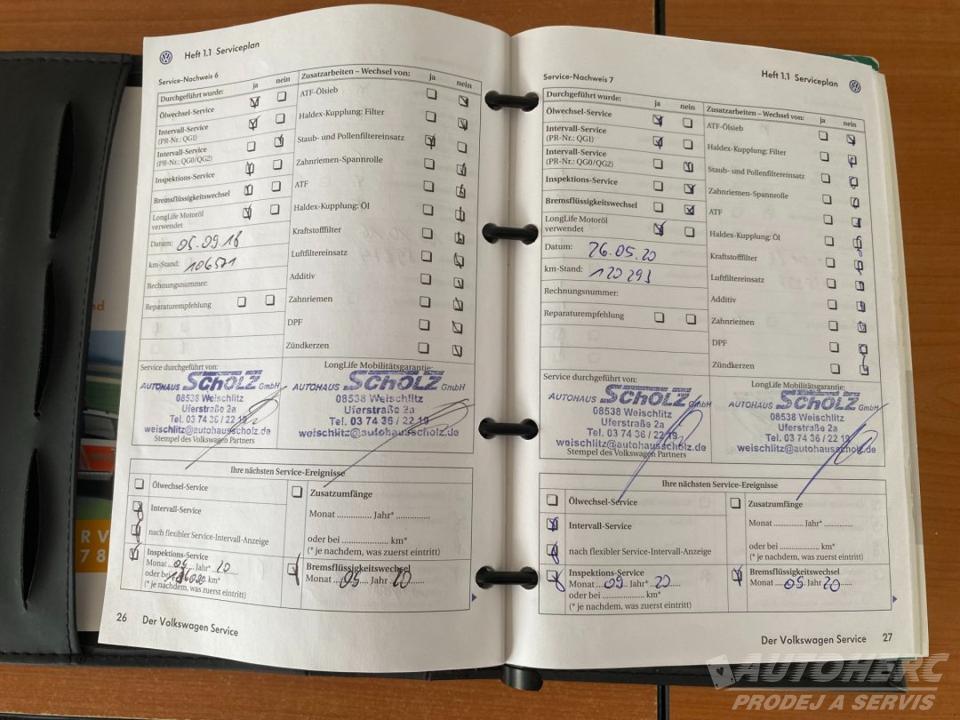 Heft 1.1 Serviceplan
Service-Nachweis 6
Durchgeführt wurde: ja nein
Ölwechsel-Service
Intervall-Service
(PR-Nr.: QG1)
Intervall-Service
(PR-Nr.: QG0/QG2)
Inspektions-Service
Bremsflüssigkeitswechsel
LongLife Motoröl
verwendet
Datum: 05.09.18
km-Stand: 106571
Rechnungsnummer:
Reparaturempfehlung
Zusatzarbeiten – Wechsel von: ja nein
ATF-Ölsieb
Haldex-Kupplung: Filter
Staub- und Pollenfiltereinsatz
Zahnriemen-Spannrolle
ATF
Haldex-Kupplung: Öl
Kraftstofffilter
Luftfiltereinsatz
Additiv
Zahnriemen
DPF
Zündkerzen
Service durchgeführt von:
AUTOHAUS SCHOLZ GmbH
08538 Weischlitz
Uferstraße 2a
Tel. 03 74 36 / 22 19
weischlitz@autohausscholz.de
Stempel des Volkswagen Partners
LongLife Mobilitätsgarantie:
AUTOHAUS SCHOLZ GmbH
08538 Weischlitz
Uferstraße 2a
Tel. 03 74 36 / 22 19
weischlitz@autohausscholz.de
Ihre nächsten Service-Ereignisse
Ölwechsel-Service
Intervall-Service
nach flexibler Service-Intervall-Anzeige
Inspektions-Service
Monat 09 Jahr* 20
oder bei km*
(* je nachdem, was zuerst eintritt)
Zusatzumfänge
Monat .............. Jahr* ..............
oder bei .............. km*
(* je nachdem, was zuerst eintritt)
Bremsflüssigkeitswechsel
Monat 05 Jahr 20
26 Der Volkswagen Service
Heft 1.1 Serviceplan
Service-Nachweis 7
Durchgeführt wurde: ja nein
Ölwechsel-Service
Intervall-Service
(PR-Nr.: QG1)
Intervall-Service
(PR-Nr.: QG0/QG2)
Inspektions-Service
Bremsflüssigkeitswechsel
LongLife Motoröl
verwendet
Datum: 26.05.20
km-Stand: 120293
Rechnungsnummer:
Reparaturempfehlung
Zusatzarbeiten – Wechsel von: ja nein
ATF-Ölsieb
Haldex-Kupplung: Filter
Staub- und Pollenfiltereinsatz
Zahnriemen-Spannrolle
ATF
Haldex-Kupplung: Öl
Kraftstofffilter
Luftfiltereinsatz
Additiv
Zahnriemen
DPF
Zündkerzen
Service durchgeführt von:
AUTOHAUS SCHOLZ GmbH
08538 Weischlitz
Uferstraße 2a
Tel. 03 74 36 / 22 19
weischlitz@autohausscholz.de
Stempel des Volkswagen Partners
LongLife Mobilitätsgarantie:
AUTOHAUS SCHOLZ GmbH
08538 Weischlitz
Uferstraße 2a
Tel. 03 74 36 / 22 19
weischlitz@autohausscholz.de
Ihre nächsten Service-Ereignisse
Ölwechsel-Service
Intervall-Service
nach flexibler Service-Intervall-Anzeige
Inspektions-Service
Monat 09 Jahr* 20
oder bei .............. km*
(* je nachdem, was zuerst eintritt)
Zusatzumfänge
Monat .............. Jahr* ..............
oder bei .............. km*
(* je nachdem, was zuerst eintritt)
Bremsflüssigkeitswechsel
Monat 05 Jahr 20
Der Volkswagen Service 27
R V
7 8
AUTOHERC
PRODEJ A SERVIS